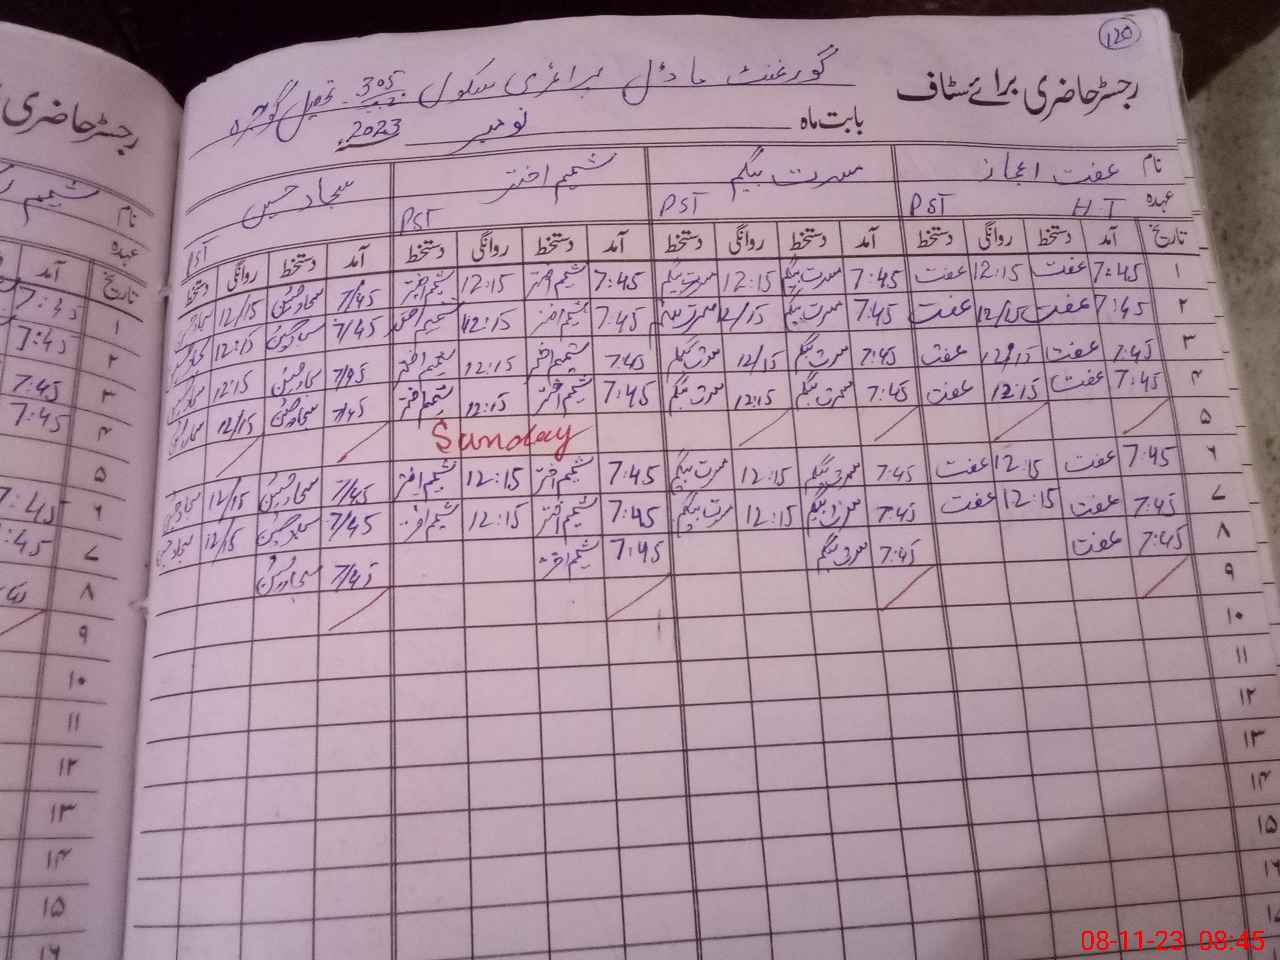 120
رجسٹر حاضری برائے سٹاف
گورنمنٹ ماڈل پرائمری سکول 305 تحصیل گوجرہ
بابت ماہ نومبر 2023
نام عفت اعجاز مسرت بیگم شمیم اختر سجاد حسین
عہدہ H.T PST PST PST PST
تاریخ آمد دستخط روانگی دستخط آمد دستخط روانگی دستخط آمد دستخط روانگی دستخط آمد دستخط روانگی دستخط
۱ 7:45 عفت 12:15 عفت 7:45 مسرت بیگم 12:15 مسرت بیگم 7:45 شمیم اختر 12:15 شمیم اختر 7/45 سجاد حسین 12/15
۲ 7:45 عفت 12/15 عفت 7:45 مسرت بیگم 12/15 مسرت بیگم 7:45 شمیم اختر 12:15 شمیم اختر 7/45 سجاد حسین 12:15
۳ 7:45 عفت 12/15 عفت 7:45 مسرت بیگم 12/15 مسرت بیگم 7:45 شمیم اختر 12:15 شمیم اختر 7/45 سجاد حسین 12:15
۴ 7:45 عفت 12:15 عفت 7:45 مسرت بیگم 12:15 مسرت بیگم 7:45 شمیم اختر 12:15 شمیم اختر 7/45 سجاد حسین 12/15
۵ Sunday
۶ 7:45 عفت 12:15 عفت 7:45 مسرت بیگم 12:15 مسرت بیگم 7:45 شمیم اختر 12:15 شمیم اختر 7/45 سجاد حسین 12/15
۷ 7:45 عفت 12:15 عفت 7:45 مسرت بیگم 12:15 مسرت بیگم 7:45 شمیم اختر 12:15 شمیم اختر 7/45 سجاد حسین 12/15 سجاد حسین
۸ 7:45 عفت 7:45 مسرت بیگم 7:45 شمیم اختر 7/45 سجاد حسین
۹
۱۰
۱۱
۱۲
۱۳
۱۴
۱۵
۱۶
رجسٹر حاضری
نام شمیم
عہدہ
تاریخ آمد
۱ 7:45
۲ 7:45
۳ 7:45
۴ 7:45
۵
۶ 7:45
۷ 7:45
۸
۹
۱۰
۱۱
۱۲
۱۳
۱۴
۱۵
۱۶
08-11-23 08:45